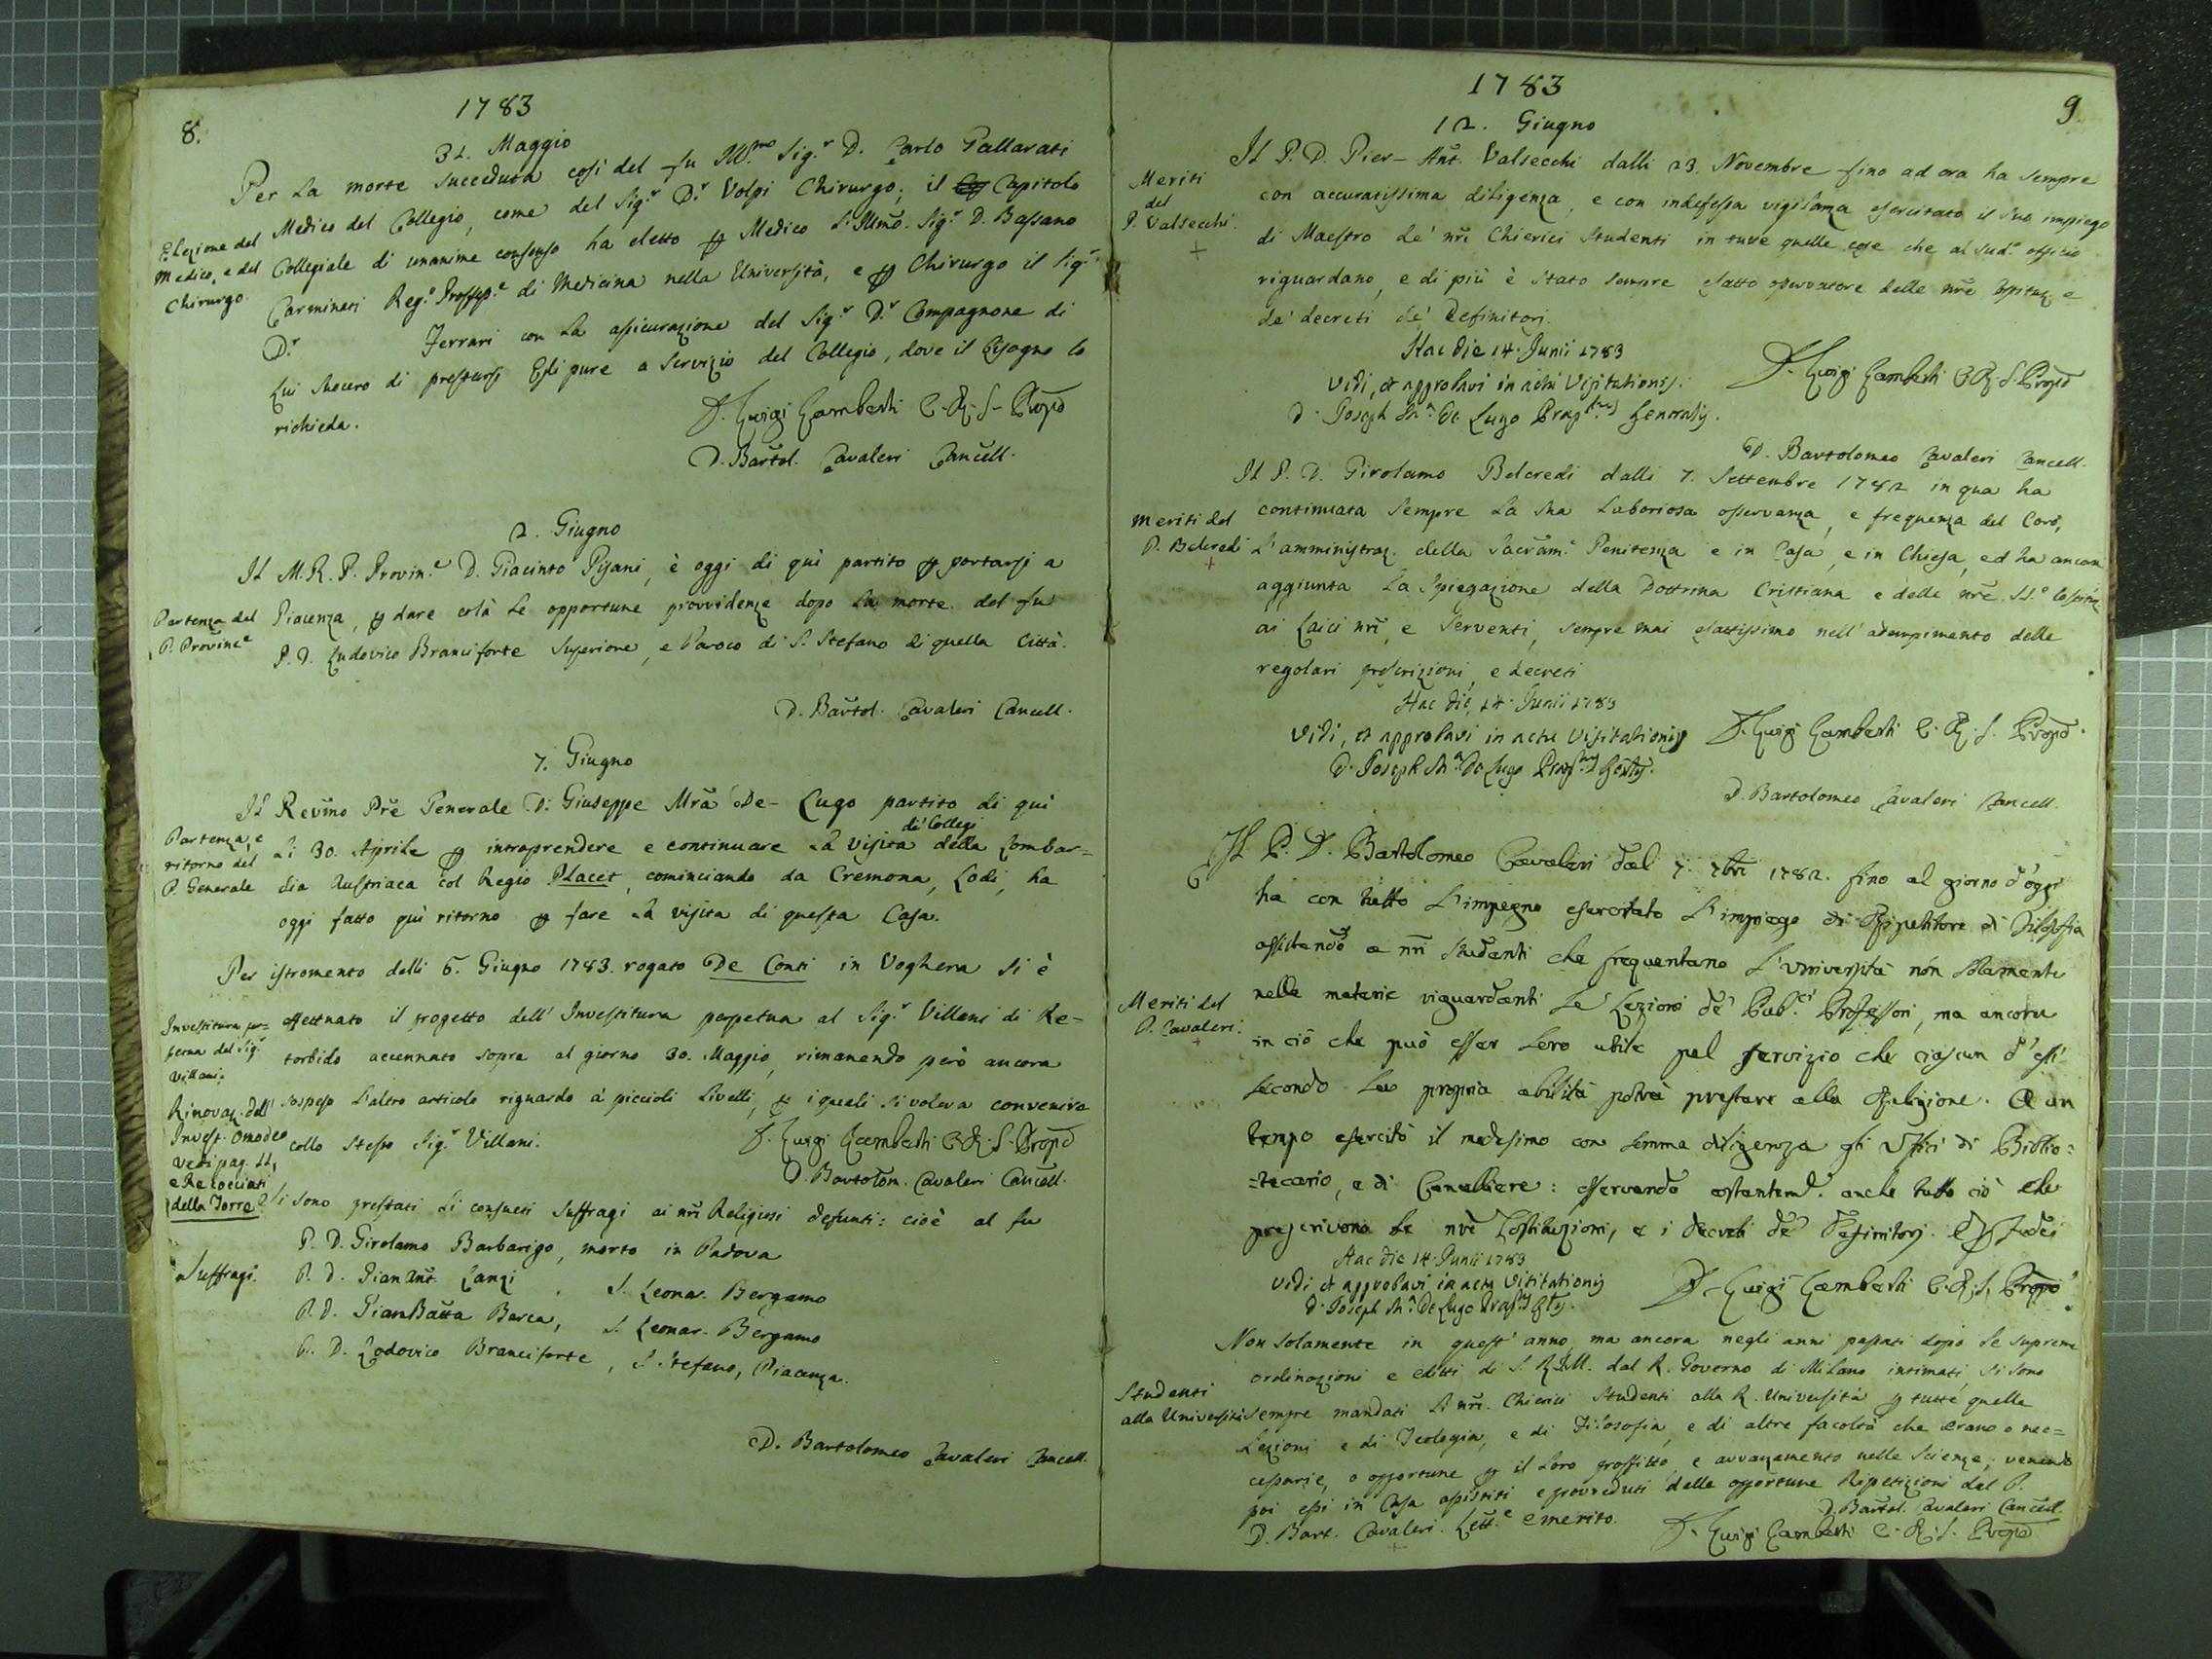 8.
1783
31. Maggio
Per la morte succeduta così del fu Ill.mo Sig.r D. Carlo Gallarati
Elezione del
Medico, e del
Chirurgo.
Medico del Collegio, come del Sig.r D.r Volpi Chirurgo; il Capitolo
Collegiale di unanime consenso ha eletto p Medico l'Illmo. Sig.r D. Bassano
Carminati Reg.o Profess.e di Medicina nella Università, e p Chirurgo il Sig.r
D.r Ferrari con la assicurazione del Sig.r D.r Compagnone di
Lui Suocero di prestarsi Egli pure a Servizio del Collegio, dove il bisogno lo
richieda.
D. Luigi Lamberti C. R. S. Propo
D. Bartol. Cavaleri Cancell.
2. Giugno
Il M. R. P. Provin.e D. Giacinto Pisani, è oggi di quì partito p portarsi a
Partenza del
P. Provinc.e
Piacenza, p dare colà le opportune providenze dopo la morte del fu
P. D. Ludovico Branciforte Superiore, e Paroco di S. Stefano di quella Città.
D. Bartol. Cavaleri Cancell.
7. Giugno
Il Revmo Pre Generale D. Giuseppe Mra De-Lugo partito di quì
Partenza, e
ritorno del
P. Generale
li 30. Aprile p intraprendere e continuare la visita de' Collegi della Lombar=
dia Austriaca col Regio Placet, cominciando da Cremona, Lodi, ha
oggi fatto quì ritorno p fare la visita di questa Casa.
Per istromento delli 6. Giugno 1783. rogato De Conti in Voghera si è
Investitura per=
petua del Sig.r
Villani.
effettuato il progetto dell' Investitura perpetua al Sig.r Villani di Re-
torbido accennato sopra al giorno 30. Maggio, rimanendo però ancora
Rinovaz. dell'
Invest. Omodeo
vedi pag. 11,
e Re
della Torre
sospeso l'altro articolo riguardo à piccioli livelli, p i quali si voleva convenire
collo stesso Sig.r Villani.
D. Luigi Lamberti C. R. S. Propo
D. Bartolom. Cavaleri Cancell.
Si sono prestati li consueti Suffragi ai nri Religiosi defunti: cioè al fu
Suffragi.
P. D. Girolamo Barbarigo, morto in Padova
P. D. Gian Ant. Lanzi, S. Leonar. Bergamo
P. D. GiamBatta Barca, S. Leonar. Bergamo
P. D. Lodovico Branciforte, S. Stefano, Piacenza.
D. Bartolomeo Cavaleri Cancell.
9.
1783
12. Giugno
Il P. D. Pier-Ant. Valsecchi dalli 23. Novembre fino ad ora ha sempre
Meriti
del
P. Valsecchi.
con accuratissima diligenza, e con indefessa vigilanza esercitato il suo impiego
di Maestro de' nri Chierici Studenti in tutte quelle cose che al sud.o officio
riguardano, e di più è stato sempre esatto osservatore delle nre Costituz. e
de' decreti de' Definitori.
Hac die 14. Junii 1783
Vidi, et approbavi in actu Visitationis.
D. Joseph M.a De Lugo Praep.tus Generalis.
D. Luigi Lamberti C. R. S. Propo
D. Bartolomeo Cavaleri Cancell.
Il P. D. Girolamo Belcredi dalli 7. Settembre 1782 in qua ha
Meriti del
P. Belcredi
continuata sempre la sua laboriosa osservanza, e frequenza del Coro,
l'amministraz. della Sacram.e Penitenza e in Casa, e in Chiesa, ed ha ancora
aggiunta la Spiegazione della Dottrina Cristiana e delle nre SS.e Costituz.
ai Laici nri, e Serventi, sempre mai esattissimo nell' adempimento delle
regolari prescrizioni, e decreti
Hac die, 14. Junii 1783
Vidi, et approbavi in actu Visitationis
D. Joseph M.a De Lugo Praep.tus Gnlis.
D. Luigi Lamberti C. R. S. Propo.
D. Bartolomeo Cavaleri Cancell.
Il P. D. Bartolomeo Cavaleri dal 7. 7bre 1782. fino al giorno d'oggi
ha con tutto l'impegno esercitato l'impiego di Ripetitore di Filosofia
assistendo a nri Studenti che frequentano l'Università non solamente
Meriti del
P. Cavaleri.
nelle materie riguardanti le Lezioni de' Pub.ci Professori, ma ancora
in ciò che può esser loro utile pel servizio che ciascun d'essi
secondo la propria abilità potrà prestare alla Religione. A un
tempo esercitò il medesimo con somma diligenza gli Uffici di Biblio=
=tecario, e di Cancelliere: osservando costantem.e anche tutto ciò che
prescrivono le nre Costituzioni, e i decreti de' Definitorj.
Hac die 14. Junii 1783
Vidi, et approbavi in actu Visitationis
D. Joseph M.a De Lugo Praep.tus Gnlis.
D. Luigi Lamberti C. R. S. Propo
Non solamente in quest' anno, ma ancora negli anni passati dopo le supreme
ordinazioni e editti di S. R. I. M. dal R. Governo di Milano intimati, si sono
Studenti
alla Università
sempre mandati li nri. Chierici Studenti alla R. Università p tutte quelle
Lezioni e di Teologia, e di Filosofia, e di altre facoltà che erano o nec=
cessarie, o opportune p il loro profitto, e avvanzamento nelle Scienze; venendo
poi essi in Casa assistiti e provveduti delle opportune Ripetizioni dal P.
D. Bart. Cavaleri. Lett.e emerito.
D. Bartol. Cavaleri Cancell.
D. Luigi Lamberti C. R. S. Propo